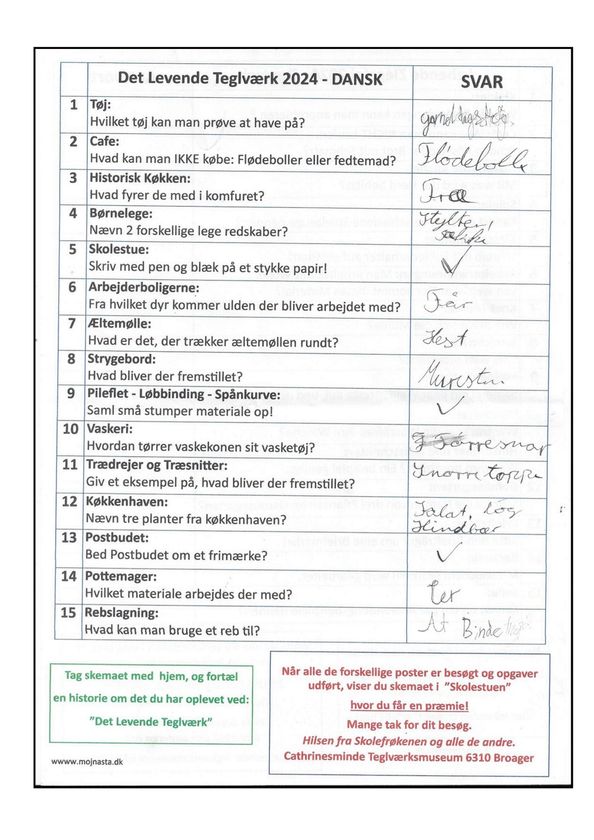 Det Levende Teglværk 2024 - DANSK
SVAR
1 Tøj:
Hvilket tøj kan man prøve at have på?
2 Cafe:
Hvad kan man IKKE købe: Flødeboller eller fedtemad?
Flødebolle
3 Historisk Køkken:
Hvad fyrer de med i komfuret?
Træ
4 Børnelege:
Nævn 2 forskellige lege redskaber?
Stylter,
5 Skolestue:
Skriv med pen og blæk på et stykke papir!
✓
6 Arbejderboligerne:
Fra hvilket dyr kommer ulden der bliver arbejdet med?
Får
7 Æltemølle:
Hvad er det, der trækker æltemøllen rundt?
Hest
8 Strygebord:
Hvad bliver der fremstillet?
Mursten
9 Pileflet - Løbbinding - Spånkurve:
Saml små stumper materiale op!
✓
10 Vaskeri:
Hvordan tørrer vaskekonen sit vasketøj?
Tørresnor
11 Trædrejer og Træsnitter:
Giv et eksempel på, hvad bliver der fremstillet?
Snorretoppe
12 Køkkenhaven:
Nævn tre planter fra køkkenhaven?
Salat, løg
Hindbær
13 Postbudet:
Bed Postbudet om et frimærke?
✓
14 Pottemager:
Hvilket materiale arbejdes der med?
Ler
15 Rebslagning:
Hvad kan man bruge et reb til?
At Binde
Tag skemaet med hjem, og fortæl
en historie om det du har oplevet ved:
"Det Levende Teglværk"
Når alle de forskellige poster er besøgt og opgaver
udført, viser du skemaet i "Skolestuen"
hvor du får en præmie!
Mange tak for dit besøg.
Hilsen fra Skolefrøkenen og alle de andre.
Cathrinesminde Teglværksmuseum 6310 Broager
wwww.mojnasta.dk